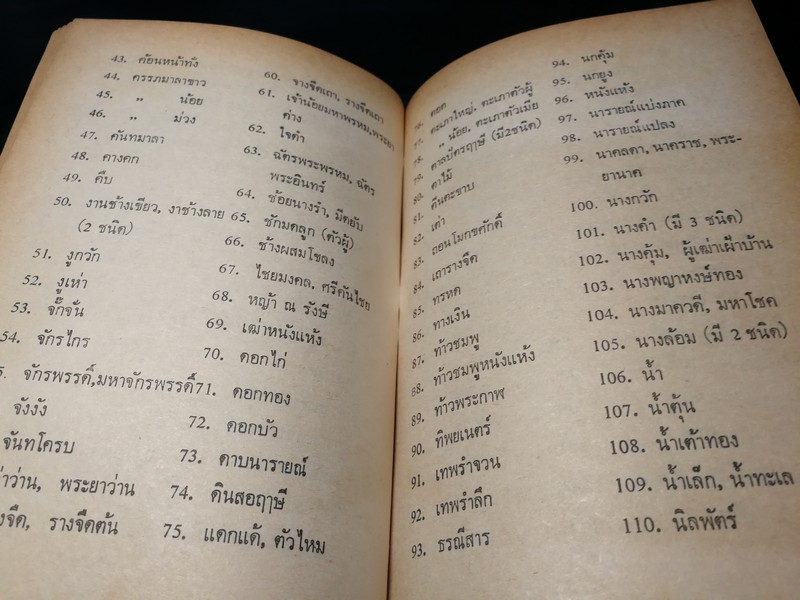 43. ค้อนหน้าทั่ง
44. ครรภมาลาขาว
45. ,, น้อย
46. ,, ม่วง
47. คันทมาลา
48. คางคก
49. คืบ
50. งานช้างเขียว, งาช้างลาย
(2 ชนิด)
51. งูกวัก
52. งูเห่า
53. จั๊กจั่น
54. จักรไกร
จักรพรรดิ์,มหาจักรพรรดิ์
จังงัง
จันทโครบ
ว่าน, พระยาว่าน
รางจืดต้น
60. จางจืดเถา, รางจืดเถา
61. เจ้าน้อยมหาพรหม,พระยา
ด่าง
62. ใจดำ
63. ฉัตรพระพรหม, ฉัตร
พระอินทร์
64. ช้อยนางรำ, มีดยับ
65. ชักมดลูก (ตัวผู้)
66. ช้างผสมโขลง
67. ไชยมงคล, ศรีคันไชย
68. หญ้า ณ รังษี
69. เฒ่าหนังแห้ง
70. ดอกไก่
71. ดอกทอง
72. ดอกบัว
73. ดาบนารายณ์
74. ดินสอฤๅษี
75. แดกแด้, ตัวไหม
76. ตยด
77. ตะเภาใหญ่, ตะเภาตัวผู้
78. ,, น้อย, ตะเภาตัวเมีย
79. ตาลปัตรฤๅษี (มี2ชนิด)
80. ตาไม้
81. ตีนตะขาบ
82. เต่า
83. ถอนโมกขศักดิ์
84. เถารางจืด
85. ทรหด
86. ทางเงิน
87. ท้าวชมพู
88. ท้าวชมพูหนังแห้ง
89. ท้าวพระกาฬ
90. ทิพยเนตร์
91. เทพรำจวน
92. เทพรำลึก
93. ธรณีสาร
94. นกคุ้ม
95. นกยูง
96. หนังแห้ง
97. นารายณ์แบ่งภาค
98. นารายณ์แปลง
99. นาคลดา, นาคราช, พระ-
ยานาค
100. นางกวัก
101. นางคำ (มี 3 ชนิด)
102. นางคุ้ม, ผู้เฒ่าเฝ้าบ้าน
103. นางพญาหงษ์ทอง
104. นางมาควดี, มหาโชค
105. นางล้อม (มี 2 ชนิด)
106. น้ำ
107. น้ำตุ้น
108. น้ำเต้าทอง
109. น้ำเล็ก, น้ำทะเล
110. นิลพัตร์